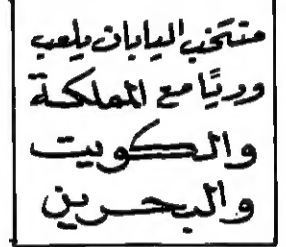 منتخب اليابان يلعب
وديًا مع المملكة
والكويت
والبحرين